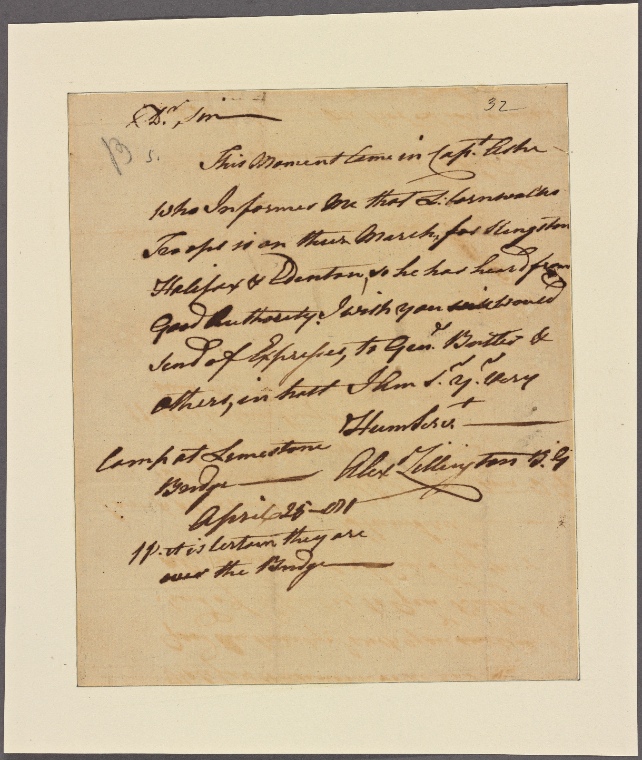 32
Dr. Sir
B
S.
This Moment Came in Capt. Ashe
who Informes Me that L. Cornwalks
Troops is on their March, for Kingston
Halifax & Edenton, so he has heard from
Good Authority. I wish you would
send of Expresses, to Genl. Butler &
others, in hast I Am Sr. Yr. Very
Humb Sert
Camp at Limestone
Bridge
Alexr Lillington B. G
April 25
it is Certain they are
over the Bridge